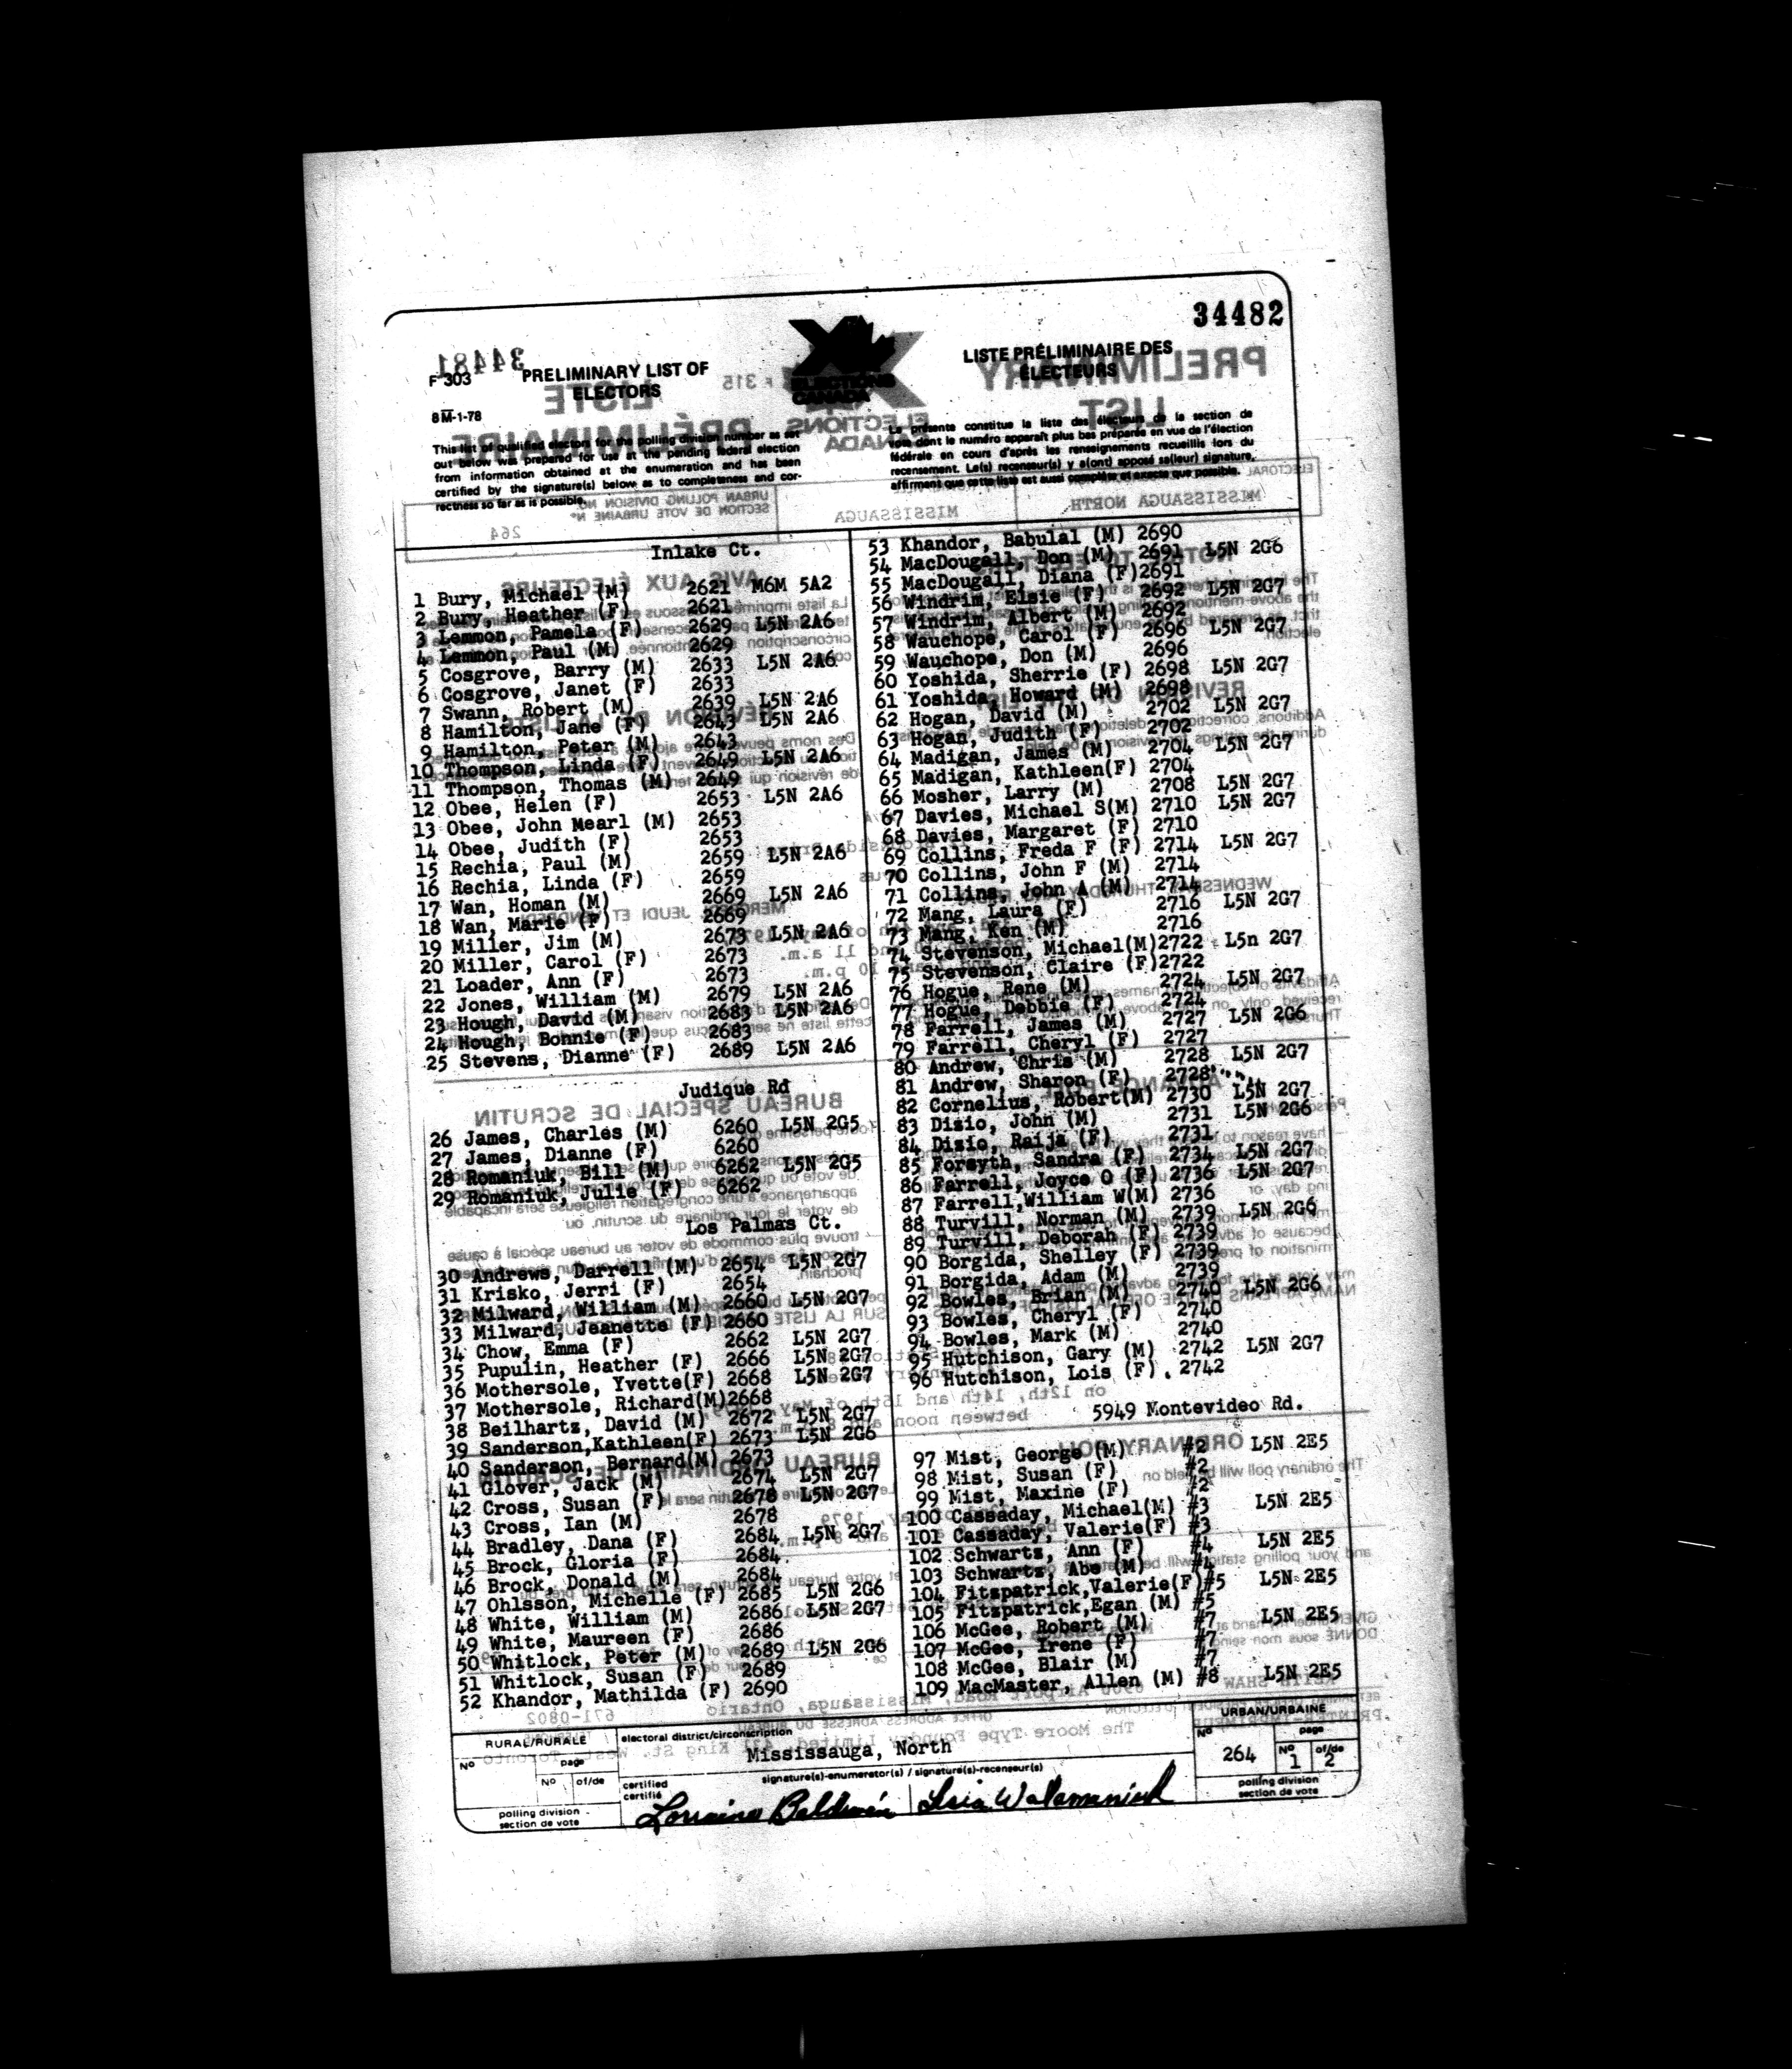 34482
F 303
PRELIMINARY LIST OF
ELECTORS
8 M-1-78
This list of qualified electors for the polling division number as set
out below was prepared for use at the pending federal election
from information obtained at the enumeration and has been
certified by the signature(s) below as to completeness and cor-
rectness so far as is possible.
ELECTIONS
CANADA
LISTE PRÉLIMINAIRE DES
ÉLECTEURS
La présente constitue la liste des électeurs de la section de
vote dont le numéro apparaît plus bas préparée en vue de l'élection
fédérale en cours d'après les renseignements recueillis lors du
recensement. Le(s) recenseur(s) y a(ont) apposé sa(leur) signature,
affirmant que cette liste est aussi complète et exacte que possible.
Inlake Ct.
1 Bury, Michael (M) 2621 M6M 5A2
2 Bury, Heather (F) 2621
3 Lemmon, Pamela (F) 2629 L5N 2A6
4 Lemmon, Paul (M) 2629
5 Cosgrove, Barry (M) 2633 L5N 2A6
6 Cosgrove, Janet (F) 2633
7 Swann, Robert (M) 2639 L5N 2A6
8 Hamilton, Jane (F) 2643 L5N 2A6
9 Hamilton, Peter (M) 2643
10 Thompson, Linda (F) 2649 L5N 2A6
11 Thompson, Thomas (M) 2649
12 Obee, Helen (F) 2653 L5N 2A6
13 Obee, John Mearl (M) 2653
14 Obee, Judith (F) 2653
15 Rechia, Paul (M) 2659 L5N 2A6
16 Rechia, Linda (F) 2659
17 Wan, Homan (M) 2669 L5N 2A6
18 Wan, Marie (F) 2669
19 Miller, Jim (M) 2673 L5N 2A6
20 Miller, Carol (F) 2673
21 Loader, Ann (F) 2673
22 Jones, William (M) 2679 L5N 2A6
23 Hough, David (M) 2683 L5N 2A6
24 Hough, Bonnie (F) 2683
25 Stevens, Dianne (F) 2689 L5N 2A6
Judique Rd
26 James, Charles (M) 6260 L5N 2G5
27 James, Dianne (F) 6260
28 Romaniuk, Bill (M) 6262 L5N 2G5
29 Romaniuk, Julie (F) 6262
Los Palmas Ct.
30 Andrews, Darrell (M) 2654 L5N 2G7
31 Krisko, Jerri (F) 2654
32 Milward, William (M) 2660 L5N 2G7
33 Milward, Jeanette (F) 2660
34 Chow, Emma (F) 2662 L5N 2G7
35 Pupulin, Heather (F) 2666 L5N 2G7
36 Mothersole, Yvette(F) 2668 L5N 2G7
37 Mothersole, Richard(M)2668
38 Beilhartz, David (M) 2672 L5N 2G7
39 Sanderson,Kathleen(F) 2673 L5N 2G6
40 Sanderson, Bernard(M) 2673
41 Glover, Jack (M) 2674 L5N 2G7
42 Cross, Susan (F) 2678 L5N 2G7
43 Cross, Ian (M) 2678
44 Bradley, Dana (F) 2684 L5N 2G7
45 Brock, Gloria (F) 2684
46 Brock, Donald (M) 2684
47 Ohlsson, Michelle (F) 2685 L5N 2G6
48 White, William (M) 2686 L5N 2G7
49 White, Maureen (F) 2686
50 Whitlock, Peter (M) 2689 L5N 2G6
51 Whitlock, Susan (F) 2689
52 Khandor, Mathilda (F) 2690
53 Khandor, Babulal (M) 2690
54 MacDougall, Don (M) 2691 L5N 2G6
55 MacDougall, Diana (F)2691
56 Windrim, Elsie (F) 2692 L5N 2G7
57 Windrim, Albert (M) 2692
58 Wauchope, Carol (F) 2696 L5N 2G7
59 Wauchope, Don (M) 2696
60 Yoshida, Sherrie (F) 2698 L5N 2G7
61 Yoshida, Howard (M) 2698
62 Hogan, David (M) 2702 L5N 2G7
63 Hogan, Judith (F) 2702
64 Madigan, James (M) 2704 L5N 2G7
65 Madigan, Kathleen(F) 2704
66 Mosher, Larry (M) 2708 L5N 2G7
67 Davies, Michael S(M) 2710 L5N 2G7
68 Davies, Margaret (F) 2710
69 Collins, Freda F (F) 2714 L5N 2G7
70 Collins, John F (M) 2714
71 Collins, John A (M) 2714
72 Mang, Laura (F) 2716 L5N 2G7
73 Mang, Ken (M) 2716
74 Stevenson, Michael(M)2722 L5n 2G7
75 Stevenson, Claire (F)2722
76 Hogue, Rene (M) 2724 L5N 2G7
77 Hogue, Debbie (F) 2724
78 Farrell, James (M) 2727 L5N 2G6
79 Farrell, Cheryl (F) 2727
80 Andrew, Chris (M) 2728 L5N 2G7
81 Andrew, Sharon (F) 2728
82 Cornelius, Robert(M) 2730 L5N 2G7
83 Dizio, John (M) 2731 L5N 2G6
84 Dizio, Raija (F) 2731
85 Forsyth, Sandra (F) 2734 L5N 2G7
86 Farrell, Joyce O (F) 2736 L5N 2G7
87 Farrell,William W(M) 2736
88 Turvill, Norman (M) 2739 L5N 2G6
89 Turvill, Deborah (F) 2739
90 Borgida, Shelley (F) 2739
91 Borgida, Adam (M) 2739
92 Bowles, Brian (M) 2740 L5N 2G6
93 Bowles, Cheryl (F) 2740
94 Bowles, Mark (M) 2740
95 Hutchison, Gary (M) 2742 L5N 2G7
96 Hutchison, Lois (F) 2742
5949 Montevideo Rd.
97 Mist, George (M) #2 L5N 2E5
98 Mist, Susan (F) #2
99 Mist, Maxine (F) #2
100 Cassaday, Michael(M) #3 L5N 2E5
101 Cassaday, Valerie(F) #3
102 Schwartz, Ann (F) #4 L5N 2E5
103 Schwartz, Abe (M) #4
104 Fitzpatrick,Valerie(F)#5 L5N 2E5
105 Fitzpatrick,Egan (M) #5
106 McGee, Robert (M) #7 L5N 2E5
107 McGee, Irene (F) #7
108 McGee, Blair (M) #7
109 MacMaster, Allen (M) #8 L5N 2E5
RURAL/RURALE
No
page
No of/de
polling division
section de vote
electoral district/circonscription
Mississauga, North
signature(s)-enumerator(s) / signature(s)-recenseur(s)
certified
certifié
Lorraine Baldwin
URBAN/URBAINE
No
page
264
No of/de
1 2
polling division
section de vote